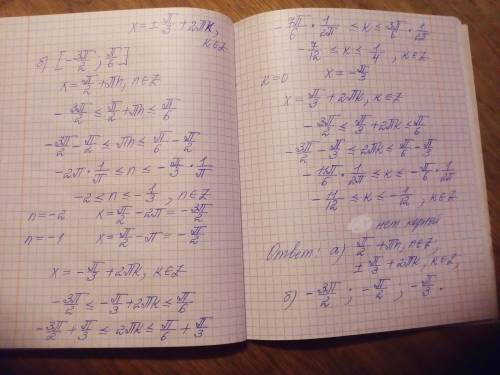 x = ± π/3 + 2πk,
k∈Z
б) [-3π/2 ; π/6]
x = π/2 + πn, n∈Z
- 3π/2 ≤ π/2 + πn ≤ π/6
- 3π/2 - π/2 ≤ πn ≤ π/6 - π/2
- 2π · 1/π ≤ n ≤ - π/3 · 1/π
- 2 ≤ n ≤ - 1/3, n∈Z
n = -2 x = π/2 - 2π = - 3π/2
n = -1 x = π/2 - π = - π/2
x = - π/3 + 2πk, k∈Z
- 3π/2 ≤ - π/3 + 2πk ≤ π/6
- 3π/2 + π/3 ≤ 2πk ≤ π/6 + π/3
- 7π/6 · 1/2π ≤ k ≤ 3π/6 · 1/2π
- 7/12 ≤ k ≤ 1/4, k∈Z
k = 0 x = - π/3
x = π/3 + 2πk, k∈Z
- 3π/2 ≤ π/3 + 2πk ≤ π/6
- 3π/2 - π/3 ≤ 2πk ≤ π/6 - π/3
- 11π/6 · 1/2π ≤ k ≤ - π/6 · 1/2π
- 11/12 ≤ k ≤ - 1/12, k∈Z
нет корней
Ответ: а) π/2 + πn, n∈Z,
± π/3 + 2πk, k∈Z;
б) - 3π/2 ; - π/2 ; - π/3.